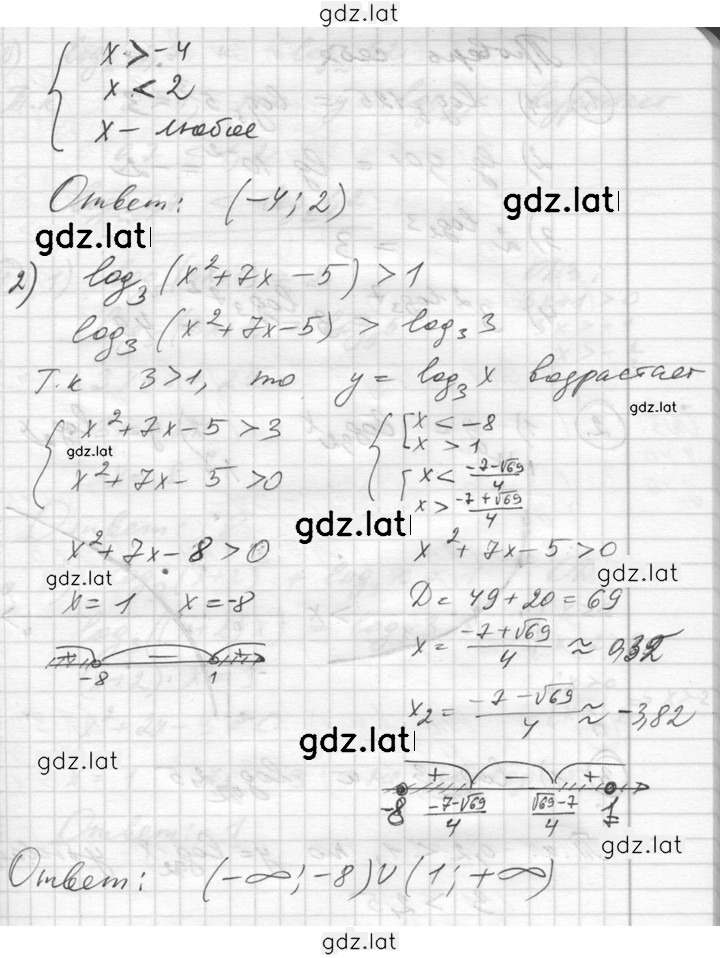 gdz.lat
x > -4
x < 2
x - любое
Ответ: (-4; 2)
gdz.lat
gdz.lat
2) log₃(x²+7x-5) > 1
log₃(x²+7x-5) > log₃3
Т.к 3>1, то y = log₃x возрастает
gdz.lat
x²+7x-5>3
x²+7x-5>0
gdz.lat
x < -8
x > 1
x < (-7-√69)/4
x > (-7+√69)/4
gdz.lat
x²+7x-8>0
gdz.lat
x=1 x=-8
+ - +
-8 1
x²+7x-5>0
gdz.lat
D=49+20=69
x = (-7+√69)/4 ≈ 0,32
x₂ = (-7-√69)/4 ≈ -3,82
gdz.lat
gdz.lat
+ - +
-8 (-7-√69)/4 (√69-7)/4 1
gdz.lat
Ответ: (-∞; -8)∪(1; +∞)
gdz.lat